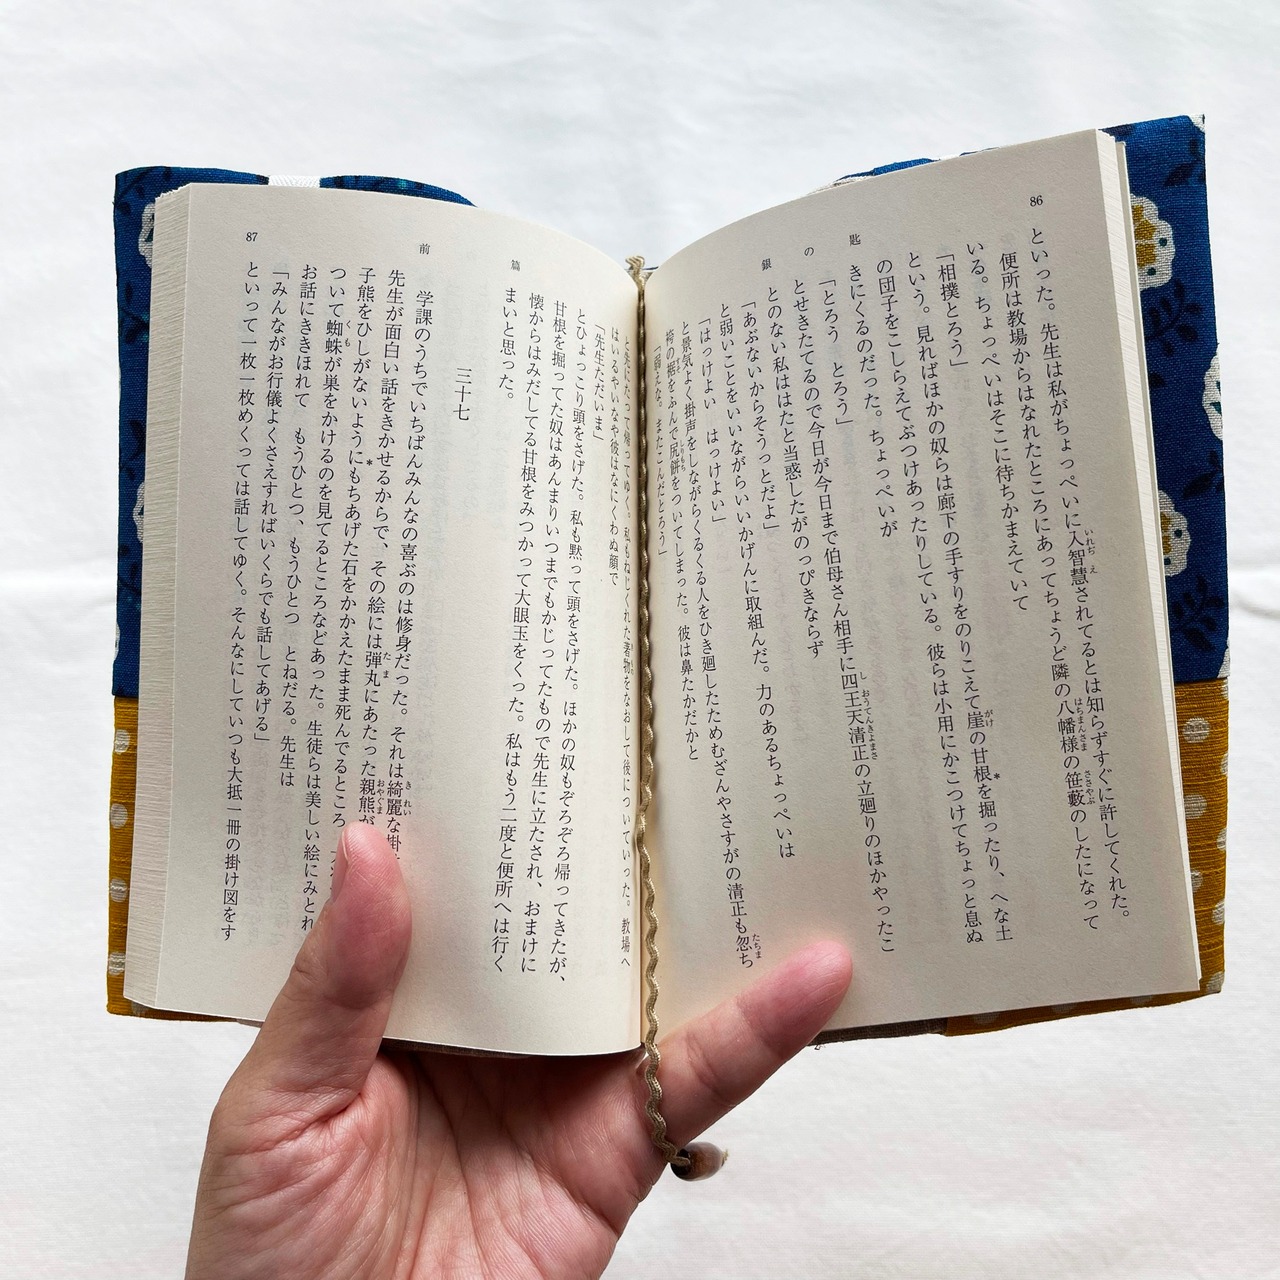 86
銀の匙
といった。先生は私がちょっぺいに入智慧されてるとは知らずすぐに許してくれた。
便所は教場からはなれたところにあってちょうど隣の八幡様の笹藪のしたになって
いる。ちょっぺいはそこに待ちかまえていて
「相撲とろう」
という。見ればほかの奴らは廊下の手すりをのりこえて崖の甘根を掘ったり、へな土
の団子をこしらえてぶつけあったりしている。彼らは小用にかこつけてちょっと息ぬ
きにくるのだった。ちょっぺいが
「とろう　とろう」
とせきたてるので今日が今日まで伯母さん相手に四王天清正の立廻りのほかやったこ
とのない私ははたと当惑したがのっぴきならず
「あぶないからそうっとだよ」
と弱いことをいいながらいいかげんに取組んだ。力のあるちょっぺいは
「はっけよい　はっけよい」
と景気よく掛声をしながらくるくる人をひき廻したためむざんやさすがの清正も忽ち
袴の裾をふんで尻餅をついてしまった。彼は鼻たかだかと
「弱えな。またこんだとろう」
87
前篇
と先にたって帰ってゆく。私もねじくれた著物をなおして後についていった。教場へ
はいるやいなや彼はなにくわぬ顔で
「先生ただいま」
とひょっこり頭をさげた。私も黙って頭をさげた。ほかの奴もぞろぞろ帰ってきたが、
甘根を掘ってた奴はあんまりいつまでもかじってたもので先生に立たされ、おまけに
懐からはみだしてる甘根をみつかって大眼玉をくった。私はもう二度と便所へは行く
まいと思った。
三十七
学課のうちでいちばんみんなの喜ぶのは修身だった。それは綺麗な掛
先生が面白い話をきかせるからで、その絵には弾丸にあたった親熊が
子熊をひしがないようにもちあげた石をかかえたまま死んでるところ
ついて蜘蛛が巣をかけるのを見てるところなどあった。生徒らは美しい絵にみとれ
お話にききほれて　もうひとつ、もうひとつ　とねだる。先生は
「みんながお行儀よくさえすればいくらでも話してあげる」
といって一枚一枚めくっては話してゆく。そんなにしていつも大抵一冊の掛け図をす